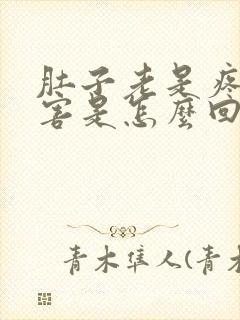 肚子老是疼
害是怎麼回
青木隼人(青木